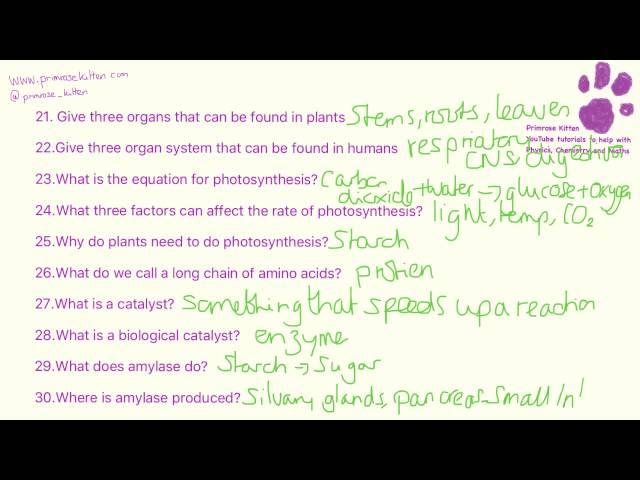 www.primrosekitten.com
@primrose_kitten
21. Give three organs that can be found in plants Stems, roots, leaves
Primrose Kitten
YouTube tutorials to help with
Physics, Chemistry and Maths
22.Give three organ system that can be found in humans respiratory
CNS, digestive
23.What is the equation for photosynthesis? Carbon
dioxide + water → glucose + oxygen
24.What three factors can affect the rate of photosynthesis? light, temp, CO2
25.Why do plants need to do photosynthesis? Starch
26.What do we call a long chain of amino acids? protien
27.What is a catalyst? Something that speeds up a reaction
28.What is a biological catalyst? enzyme
29.What does amylase do? Starch → Sugar
30.Where is amylase produced? Silvary glands, pancreas small In'